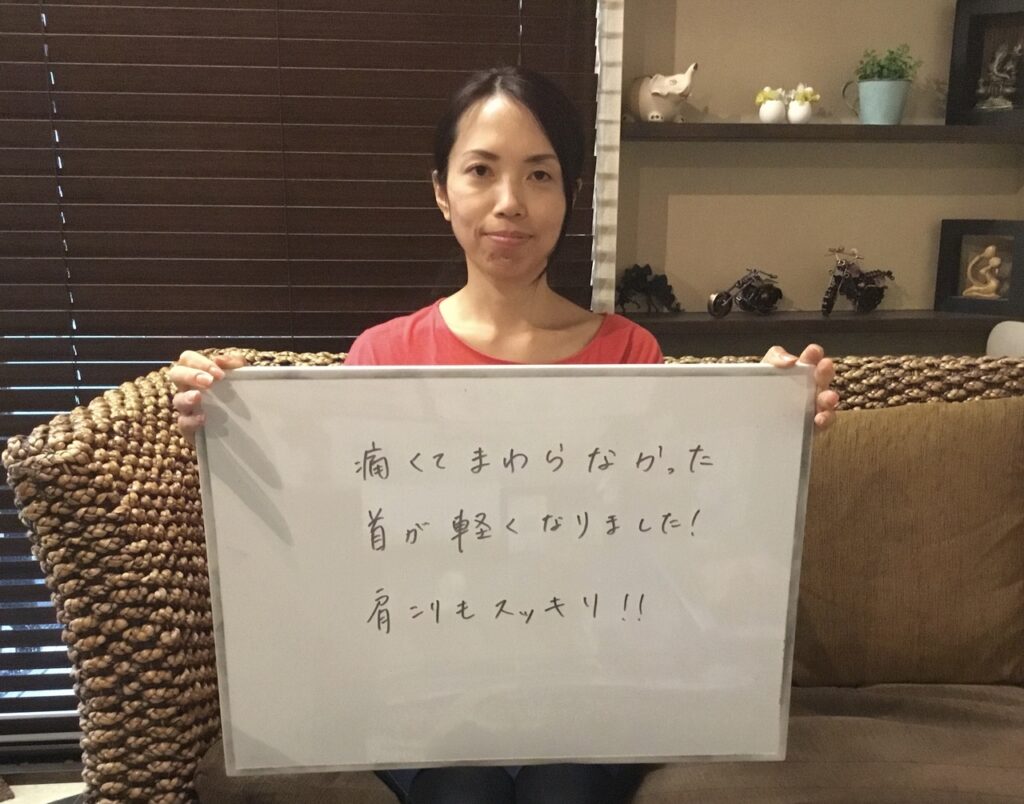 痛くてまわらなかった
首が軽くなりました!
肩こりもスッキリ!!